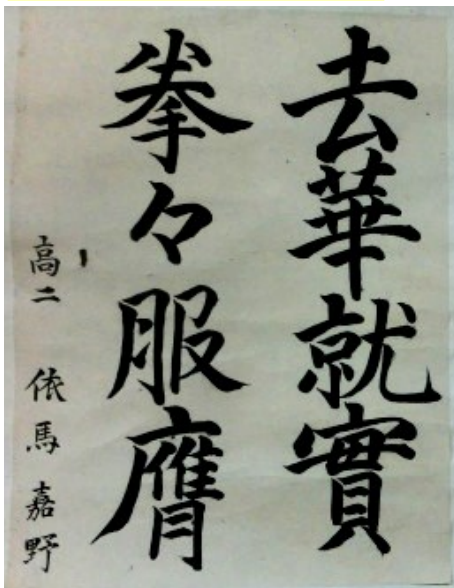 去華就實
拳々服膺
高二 依馬嘉野